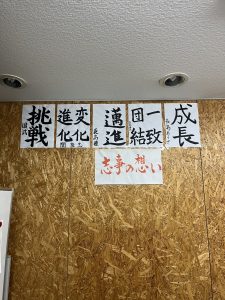 成長
一致
団結
邁進
変化
進化
挑戦
志事の想い